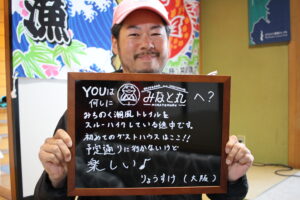 YOUは
何しに
みなと丸へ?
みちのく潮風トレイルを
スルーハイクしている途中です。
初めてのゲストハウスはここ!!
予定通りに行かないけど
楽しい♪
りょうすけ(大阪)